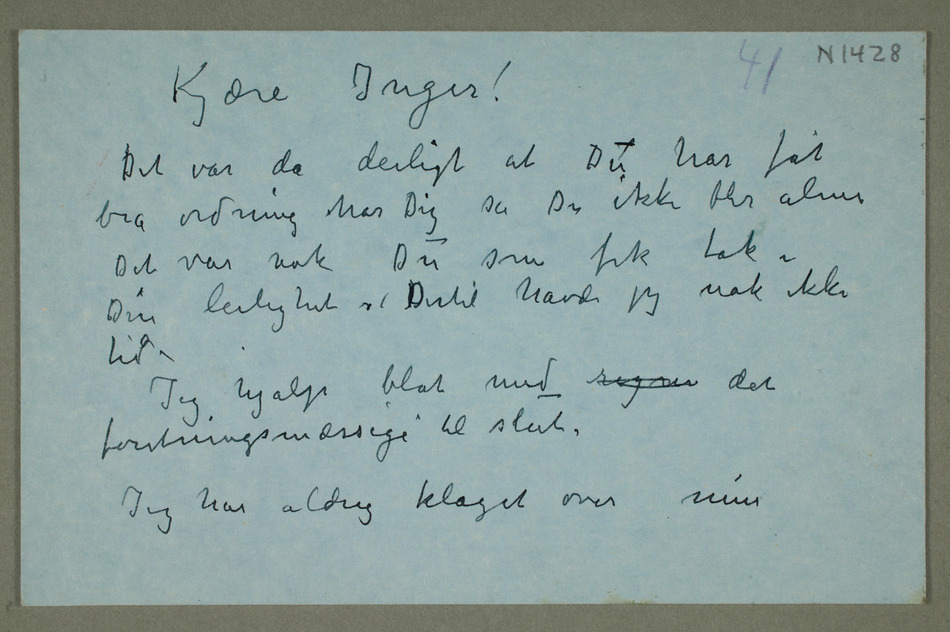 41 N1428
Kjære Inger!
Det var da deiligt at Du har fåt
bra ordning hos Dig så Du ikke blir alene
Det var nok Du som fik tak i
Din leilighet Dertil havde jeg nok ikke
tid.
Jeg hjalp blot med regne det
forretningsmæssige til slut.
Jeg har aldrig klaget over mine